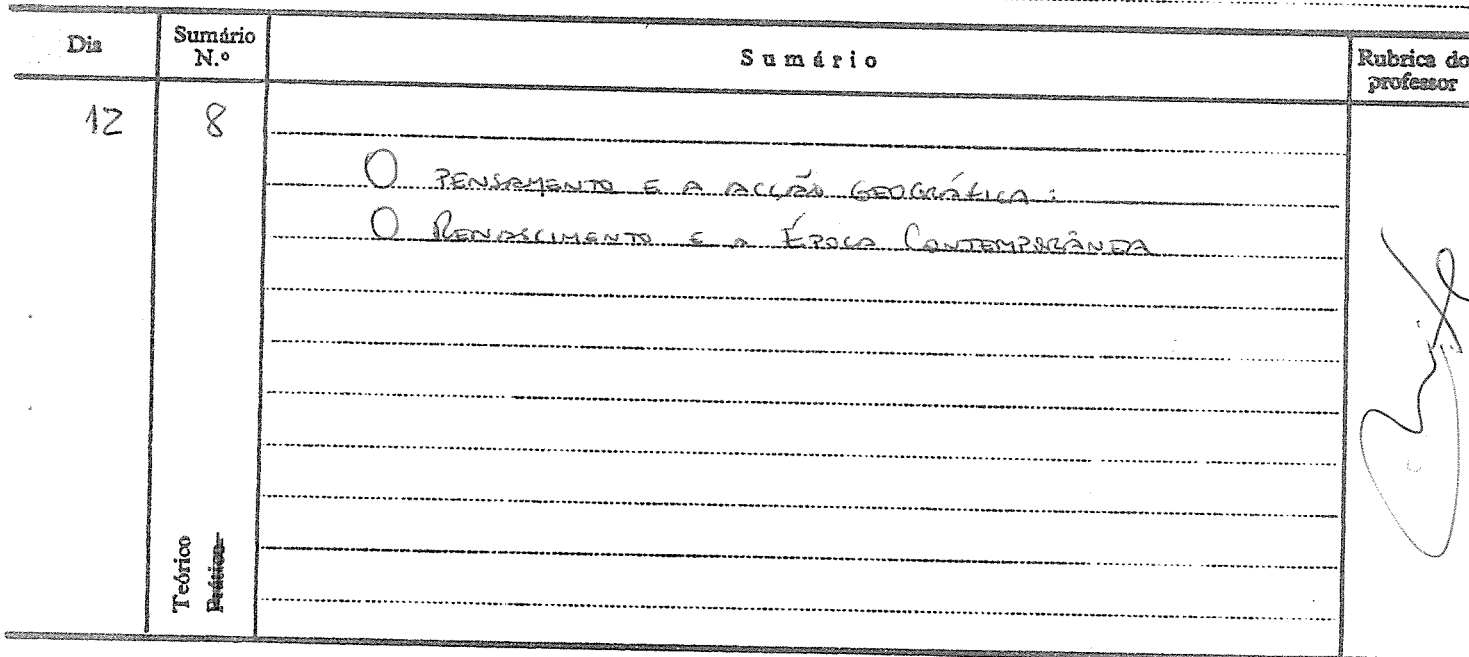 Dia
Sumário N.º
Sumário
Rubrica do professor
12
8
O PENSAMENTO E A ACÇÃO GEOGRÁFICA:
O RENASCIMENTO E A ÉPOCA CONTEMPORÂNEA
Teórico
Prático